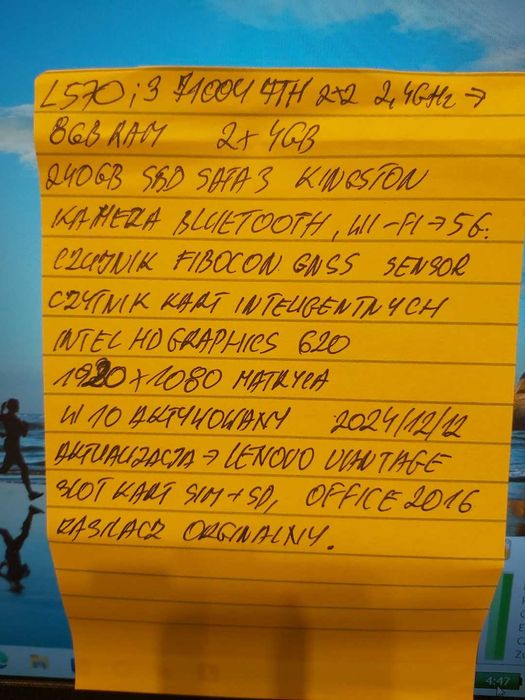 L570 i3 7100U 7TH 2x2 2,4GHz →
8GB RAM 2x4GB
240GB SSD SATA3 KINGSTON
KAMERA BLUETOOTH, WI-FI → 5G.
CZUJNIK FIBOCON GNSS SENSOR
CZYTNIK KART INTELIGENTNYCH
INTEL HD GRAPHICS 620
1920x1080 MATRYCA
W10 AKTYWOWANY 2024/12/12
AKTUALIZACJA → LENOVO VANTAGE
SLOT KART SIM+SD, OFFICE 2016
ZASILACZ ORGINALNY.
4:47